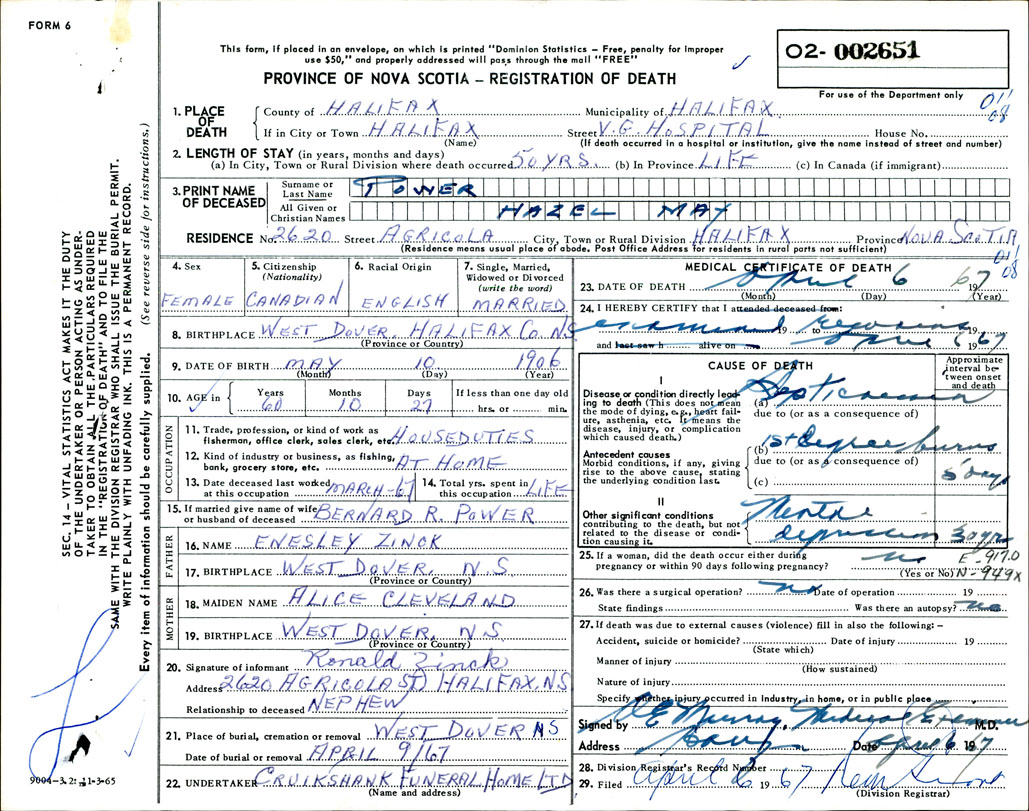 FORM 6
This form, if placed in an envelope, on which is printed "Dominion Statistics – Free, penalty for improper
use $50," and properly addressed will pass through the mail "FREE"
PROVINCE OF NOVA SCOTIA – REGISTRATION OF DEATH
02- 002651
For use of the Department only
011
08
1. PLACE OF DEATH County of HALIFAX Municipality of HALIFAX
If in City or Town HALIFAX Street V.G. HOSPITAL House No.
(Name) (If death occurred in a hospital or institution, give the name instead of street and number)
2. LENGTH OF STAY (in years, months and days)
(a) In City, Town or Rural Division where death occurred 50 YRS. (b) In Province LIFE (c) In Canada (if immigrant)
3. PRINT NAME OF DECEASED Surname or Last Name POWER
All Given or Christian Names HAZEL MAY
RESIDENCE No. 2620 Street AGRICOLA City, Town or Rural Division HALIFAX Province NOVA SCOTIA
(Residence means usual place of abode. Post Office Address for residents in rural parts not sufficient)
011
08
4. Sex FEMALE
5. Citizenship (Nationality) CANADIAN
6. Racial Origin ENGLISH
7. Single, Married, Widowed or Divorced (write the word) MARRIED
8. BIRTHPLACE WEST DOVER, HALIFAX CO. NS
(Province or Country)
9. DATE OF BIRTH MAY 10 1906
(Month) (Day) (Year)
10. AGE in Years 60 Months 10 Days 27 If less than one day old hrs. or min.
OCCUPATION
11. Trade, profession, or kind of work as fisherman, office clerk, sales clerk, etc. HOUSEDUTIES
12. Kind of industry or business, as fishing, bank, grocery store, etc. AT HOME
13. Date deceased last worked at this occupation MARCH-67 14. Total yrs. spent in this occupation LIFE
15. If married give name of wife or husband of deceased BERNARD R. POWER
FATHER
16. NAME ENESLEY ZINCK
17. BIRTHPLACE WEST DOVER, N.S
(Province or Country)
MOTHER
18. MAIDEN NAME ALICE CLEVELAND
19. BIRTHPLACE WEST DOVER, N.S
(Province or Country)
20. Signature of informant Ronald Zinck
Address 2620 AGRICOLA ST HALIFAX, NS
Relationship to deceased NEPHEW
21. Place of burial, cremation or removal WEST DOVER NS
Date of burial or removal APRIL 9/67
22. UNDERTAKER CRUIKSHANK FUNERAL HOME LTD
(Name and address)
MEDICAL CERTIFICATE OF DEATH
23. DATE OF DEATH April 6 1967
(Month) (Day) (Year)
24. I HEREBY CERTIFY that I attended deceased from:
examined 19 to remains 19
and last saw h alive on April 6 1967
CAUSE OF DEATH
Approximate interval between onset and death
I
Disease or condition directly leading to death (This does not mean the mode of dying, e.g., heart failure, asthenia, etc. It means the disease, injury, or complication which caused death.)
(a) Septicaemia
due to (or as a consequence of)
Antecedent causes
Morbid conditions, if any, giving rise to the above cause, stating the underlying condition last.
(b) 1st degree burns
due to (or as a consequence of)
(c) 5 days
II
Other significant conditions contributing to the death, but not related to the disease or condition causing it.
Mental depression 30 yrs
25. If a woman, did the death occur either during pregnancy or within 90 days following pregnancy? No
(Yes or No)
E-917.0
N-949X
26. Was there a surgical operation? no Date of operation 19
State findings Was there an autopsy? no
27. If death was due to external causes (violence) fill in also the following:–
Accident, suicide or homicide? Date of injury 19
(State which)
Manner of injury
(How sustained)
Nature of injury
Specify whether injury occurred in industry, in home, or in public place
Signed by Murray, Medical Examiner M.D.
Address Date April 6 1967
28. Division Registrar's Record Number
29. Filed April 6 1967
(Division Registrar)
SEC. 14 – VITAL STATISTICS ACT MAKES IT THE DUTY
OF THE UNDERTAKER OR PERSON ACTING AS UNDER-
TAKER TO OBTAIN ALL THE PARTICULARS REQUIRED
IN THE "REGISTRATION OF DEATH" AND TO FILE THE
SAME WITH THE DIVISION REGISTRAR WHO SHALL ISSUE THE BURIAL PERMIT.
WRITE PLAINLY WITH UNFADING INK. THIS IS A PERMANENT RECORD.
Every item of information should be carefully supplied. (See reverse side for instructions.)
9004-3.2: 11-3-65